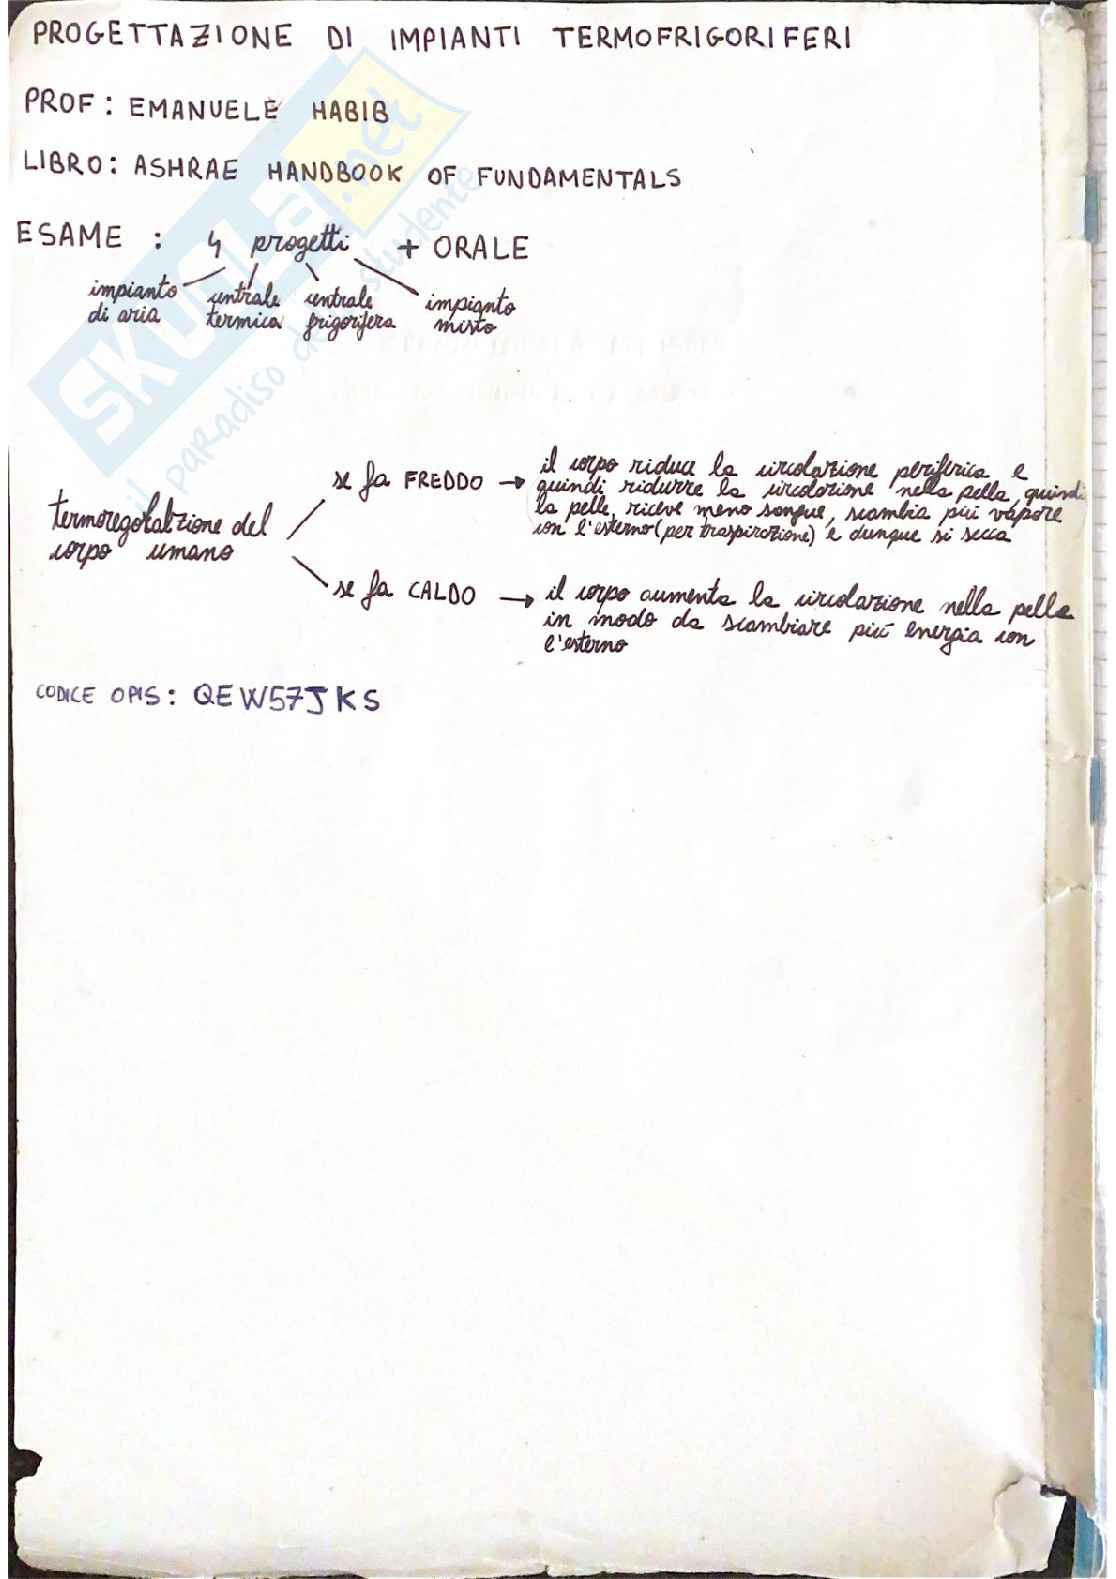 PROGETTAZIONE DI IMPIANTI TERMOFRIGORIFERI
PROF: EMANUELE HABIB
LIBRO: ASHRAE HANDBOOK OF FUNDAMENTALS
ESAME: 4 progetti + ORALE
impianto di aria
centrale termica
centrale frigorifera
impianto misto
termoregolazione del corpo umano
se fa FREDDO → il corpo riduce la circolazione periferica e
quindi ridurre la circolazione nella pelle, quindi
la pelle, riceve meno sangue, scambia più vapore
con l'esterno (per traspirazione) e dunque si secca
se fa CALDO → il corpo aumenta la circolazione nella pelle
in modo da scambiare più energia con
l'esterno
CODICE OPIS: QEW57JKS
SKUOLA.net
il paradiso dello studente